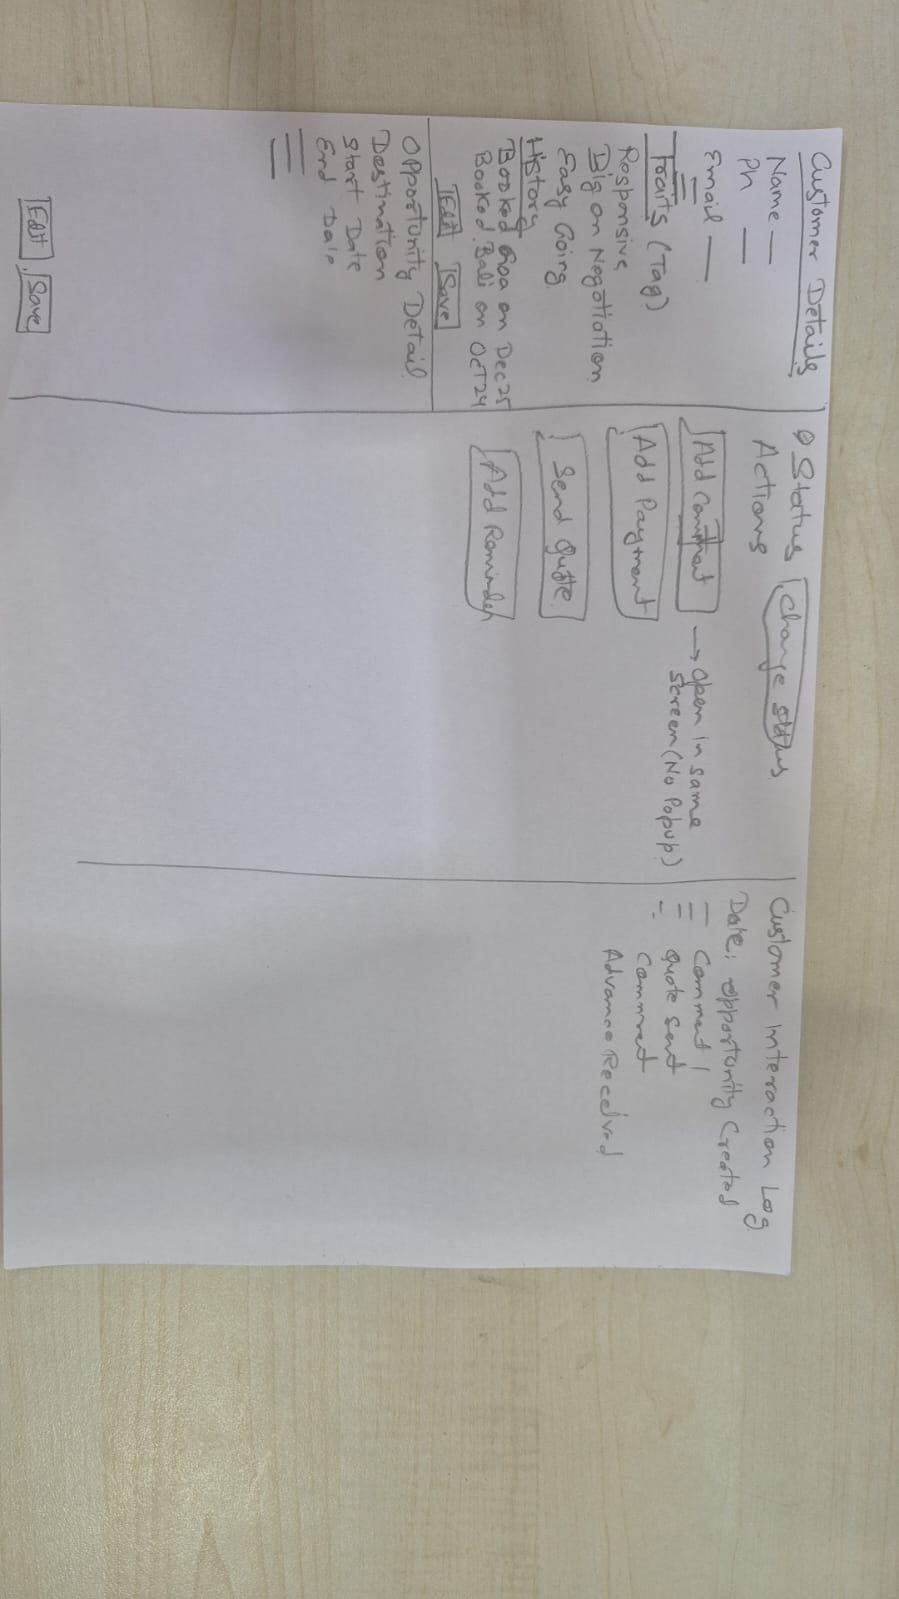 Customer Details
Name —
Ph —
Email —
Traits (Tag)
Responsive
Big on Negotiation
Easy Going
History
Booked Goa on Dec25
Booked Bali on Oct24
Edit Save
Opportunity Detail
Destination
Start Date
End Date
Edit Save
Status Change status
Actions
Add Comment → Open in same
Screen (No Popup)
Add Payment
Send Quote
Add Reminder
Customer Interaction Log
Date: Opportunity Created
Comment 1
Quote Sent
Comment
Advance Received